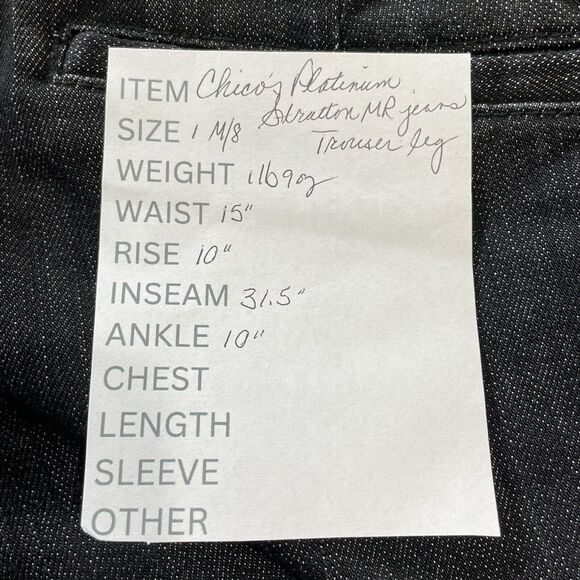 ITEM Chico's Platinum
Stratton MR jeans
SIZE 1 M/8
Trouser leg
WEIGHT 1lb9oz
WAIST 15"
RISE 10"
INSEAM 31.5"
ANKLE 10"
CHEST
LENGTH
SLEEVE
OTHER